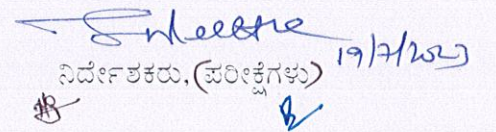 19/7/2023
ನಿರ್ದೇಶಕರು,(ಪರೀಕ್ಷೆಗಳು)